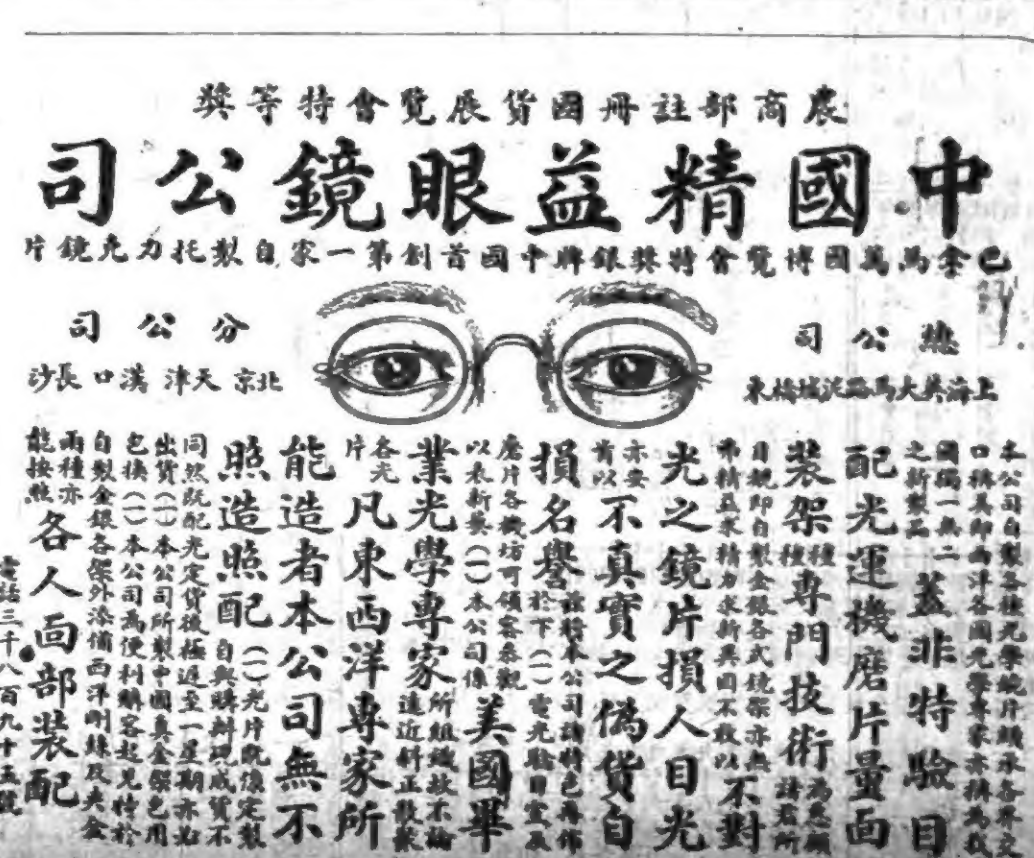 農商部註冊國貨展覽會特等獎
中國精益眼鏡公司
巴拿馬萬國博覽會特獎銀牌中國首創第一家自製托力克鏡片
總公司
上海英大馬路泥城橋東
分公司
北京 天津 漢口 長沙
本公司自製各種光學鏡片頗承各界交
口稱美即西洋各國光學專家亦稱為我
國獨一無二
之新製品
蓋非特驗目
配光運機磨片量面
裝架種種專門技術為惠顧諸君所
目覩即自製金銀各式鏡架亦無
弗精益求精力求新異因不敢以
不對
光之鏡片損人目光
亦安
肯以
不真實之偽貨自
損名譽茲特將本公司諸特色再佈
於下(一)電光驗目室及
磨片各機坊可領客參觀
以表新奧(一)本公司係
美國畢
業光學專家所組織故不論
遠近斜正散歛
各光
片
凡東西洋專家所
能造者本公司無不
照造照配(一)光片既係定製
自與購辦現成貨不
同然既配光定貨後極遲至一星期亦必
出貨(一)本公司所製中國真金架包用
包換(一)本公司為便利購客起見特於
自製金銀各架外添備西洋剛絲及夾金
兩種亦
能按照
各人面部裝配
電話三千八百九十五號